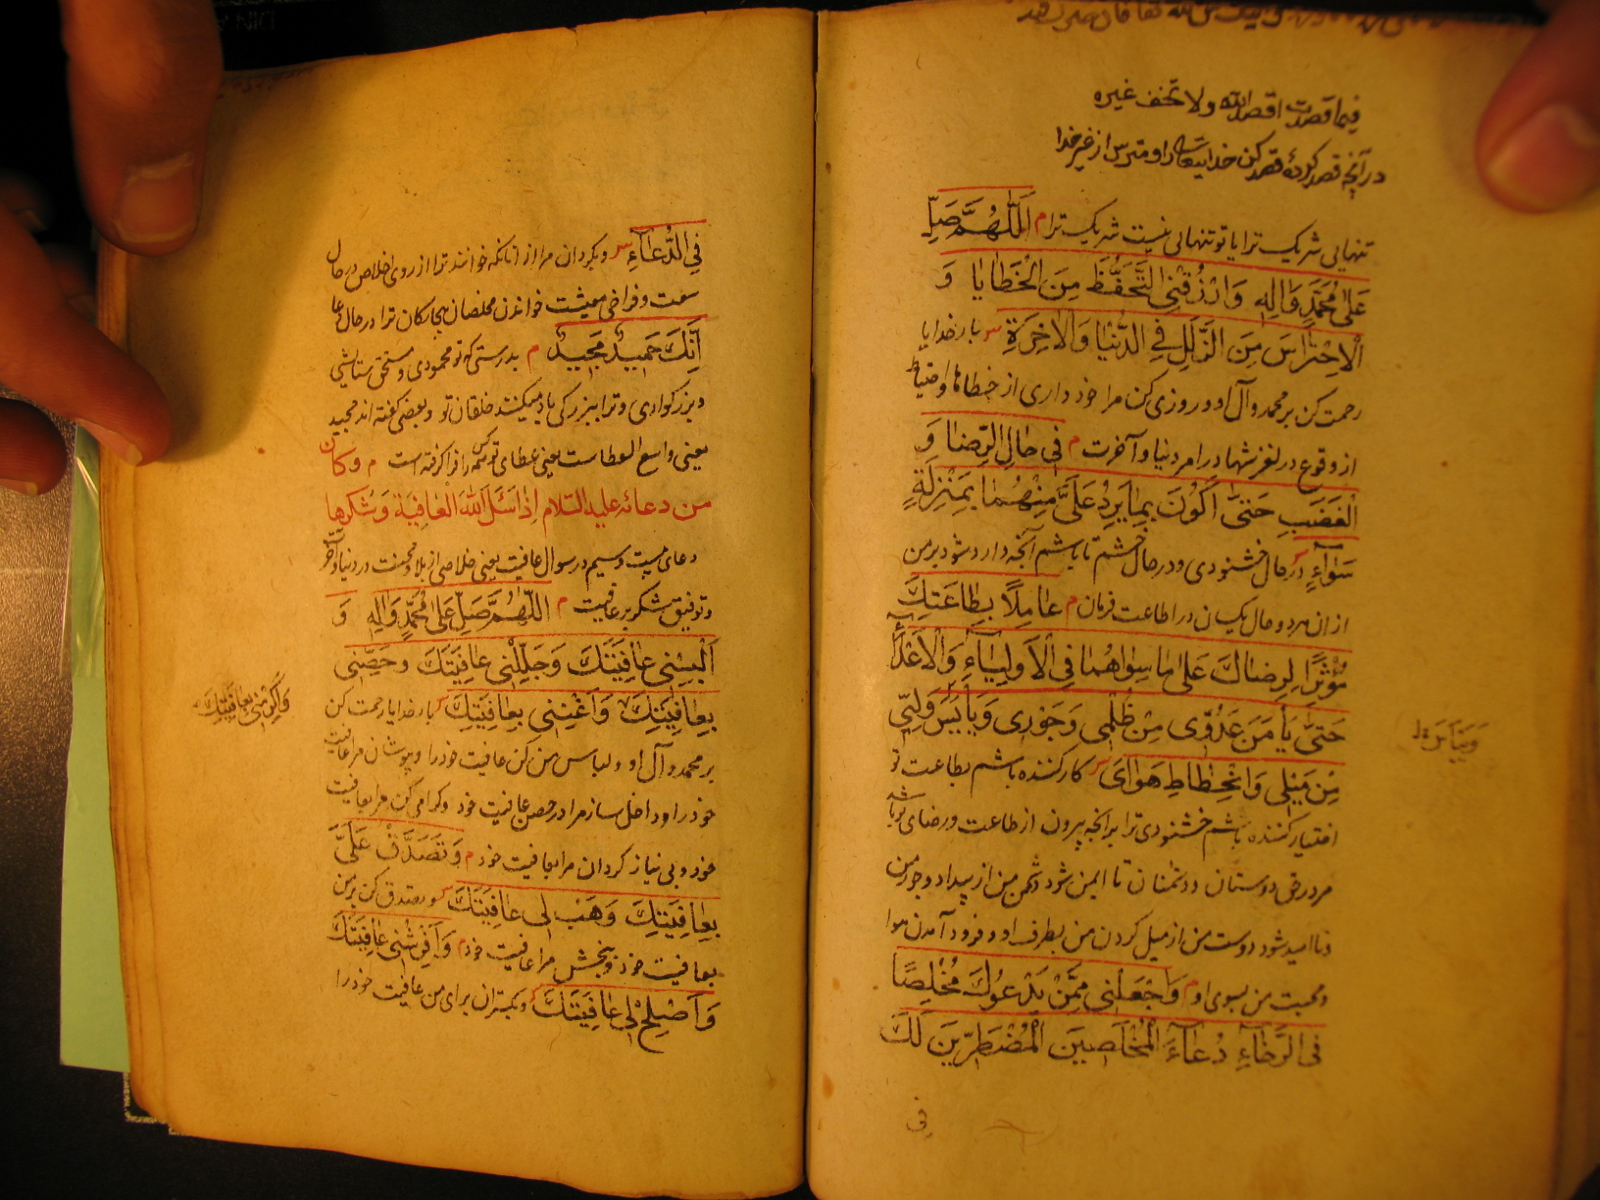 فیما قصدت اقصد الله ولا تخف غیره
در آنچه قصد کردهٔ قصد کن خدایتعالی را و مترس از غیر خدا
تنهایی شریک ترا یا تو تنهایی نیست شریک ترا م اَللّٰهُمَّ صَلِّ
عَلیٰ مُحَمَّدٍ وَالِهِ وَارْزُقْنِی التَّحَفُّظَ مِنَ الْخَطَایَا وَ
الْاِحْتِرَاسَ مِنَ الزَّلَلِ فِی الدُّنْیَا وَالْاٰخِرَةِ س بار خدایا
رحمت کن بر محمد و آل او و روزی کن مرا خود داری از خطاها و احتیاط
از وقوع در لغزشها در امر دنیا و آخرت م فِی حَالِ الرِّضَا وَ
الْغَضَبِ حَتّیٰ اَکُونَ بِمَا یَرِدُ عَلَیَّ مِنْهُمَا بِمَنْزِلَةٍ
سَوَآءٍ س در حال خشنودی و در حال خشم تا باشم آنچه وارد شود بر من
از ان هر دو حال یکسان در اطاعت فرمان م عَامِلًا بِطَاعَتِکَ
مُؤْثِرًا لِرِضَاکَ عَلیٰ مَا سِوَاهُمَا فِی الْاَوْلِیَآءِ وَالْاَعْدَآءِ
حَتّیٰ یَاْمَنَ عَدُوِّی مِنْ ظُلْمِی وَجَوْرِی وَیَایَسَ وَلِیِّی
مِنْ مَیْلِی وَانْحِطَاطِ هَوَایَ س کار کننده باشم بطاعت تو
اختیار کننده باشم خشنودی ترا بر آنچه بیرون از طاعت و رضای تو باشد
در حق دوستان و دشمنان تا ایمن شود دشمن من از بیداد و جور من
و نا امید شود دوست من از میل کردن من بطرف او و فرود آمدن هوا
و محبت من بسوی او م وَاجْعَلْنِی مِمَّنْ یَدْعُوکَ مُخْلِصًا
فِی الرَّخَآءِ دُعَآءَ الْمُخْلَصِینَ الْمُضْطَرِّینَ لَکَ
فی
فِی الدُّعَآءِ س و بگردان مرا از آنانکه خوانند ترا از روی اخلاص در حال
سعت و فراخی معیشت خواندن مخلصان بیچارگان ترا در حال دعا
اِنَّکَ حَمِیدٌ مَجِیدٌ م بدرستی که تو محمودی و مستحق ستایشی
و بزرگواری و ترا ببزرگی یاد میکنند خلقان تو و بعضی گفته اند مجید
یعنی واسع العطاست یعنی عطای تو همه کس را فرا گرفته است م وکان
من دعائه علیه السلام اِذَا سَئَلَ اللهَ الْعَافِیَةَ وَشُکْرَهَا
دعای بیست و سیم در سوال عافیت یعنی خلاصی از بلا و محنت در دنیا و آخرت
و توفیق شکر بر عافیت م اَللّٰهُمَّ صَلِّ عَلیٰ مُحَمَّدٍ وَالِهِ وَ
اَلْبِسْنِی عَافِیَتَکَ وَجَلِّلْنِی عَافِیَتَکَ وَحَصِّنِّی
بِعَافِیَتِکَ وَاَغْنِنِی بِعَافِیَتِکَ س بار خدایا رحمت کن
وَاَکْرِمْنِی بِعَافِیَتِکَ
بر محمد و آل او و لباس من کن عافیت خود را و بپوشان مرا عافیت
خود را و داخل ساز مرا در حصن عافیت خود و گرامی کن مرا بعافیت
خود و بی نیاز گردان مرا بعافیت خود م وَتَصَدَّقْ عَلَیَّ
بِعَافِیَتِکَ وَهَبْ لِی عَافِیَتَکَ س و تصدق کن بر من
بعافیت خود و ببخش مرا عافیت خود م وَاَفْرِشْنِی عَافِیَتَکَ
وَاَصْلِحْ لِی عَافِیَتَکَ س و بگستران برای من عافیت خود را